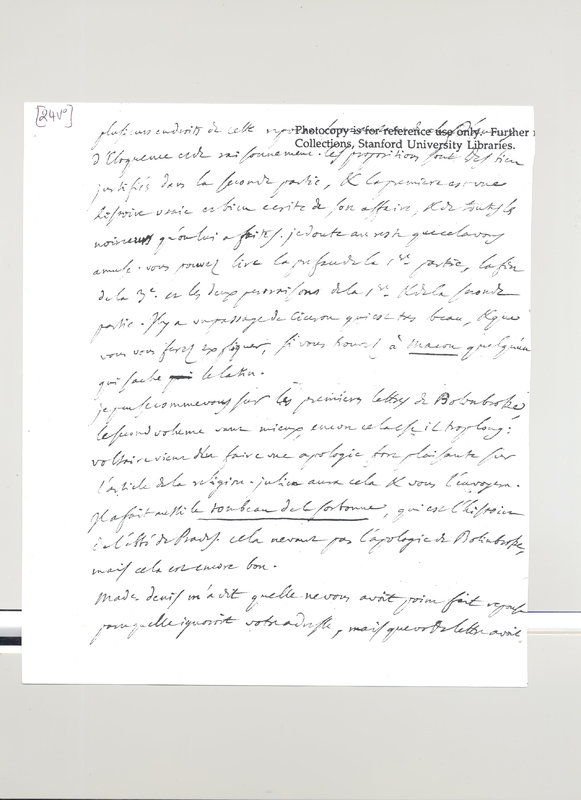 [24 v°]
Photocopy is for reference use only. Further
Collections, Stanford University Libraries.
plusieurs endroits de cette
d'Eloquence et de raisonnement. les propositions sont bien
justifiés dans la seconde partie, & la premiere est une
histoire vraie et bien ecrite de son affaire, & de toutes les
noirceurs qu'on lui a faites. je doute au reste que cela vous
amuse. vous pouvez lire la preface de la 1re. partie, la fin
de la 3e. et les deux peroraisons de la 1re. & de la seconde
partie. Il y a un passage de Ciceron qui est tres beau, & que
vous vous ferez expliquer, si vous trouvez à macon quelqu'un
qui sache le latin.
je pense comme vous sur les premieres lettres de Bolinbroke
le second volume vaut mieux, encore cela est il trop long:
voltaire vient d'en faire une apologie fort plaisante sur
l'article de la religion. julien aura cela & vous l'envoyera.
Il a fait aussi le tombeau de la sorbonne, qui est l'histoire
de l'abbé de Prades. cela ne vaut pas l'apologie de Bolinbroke,
mais cela est encore bon.
Made. denis m'a dit quelle ne vous avoit point fait reponse
parcequ'elle ignoroit votre adresse, mais que votre lettre avoit